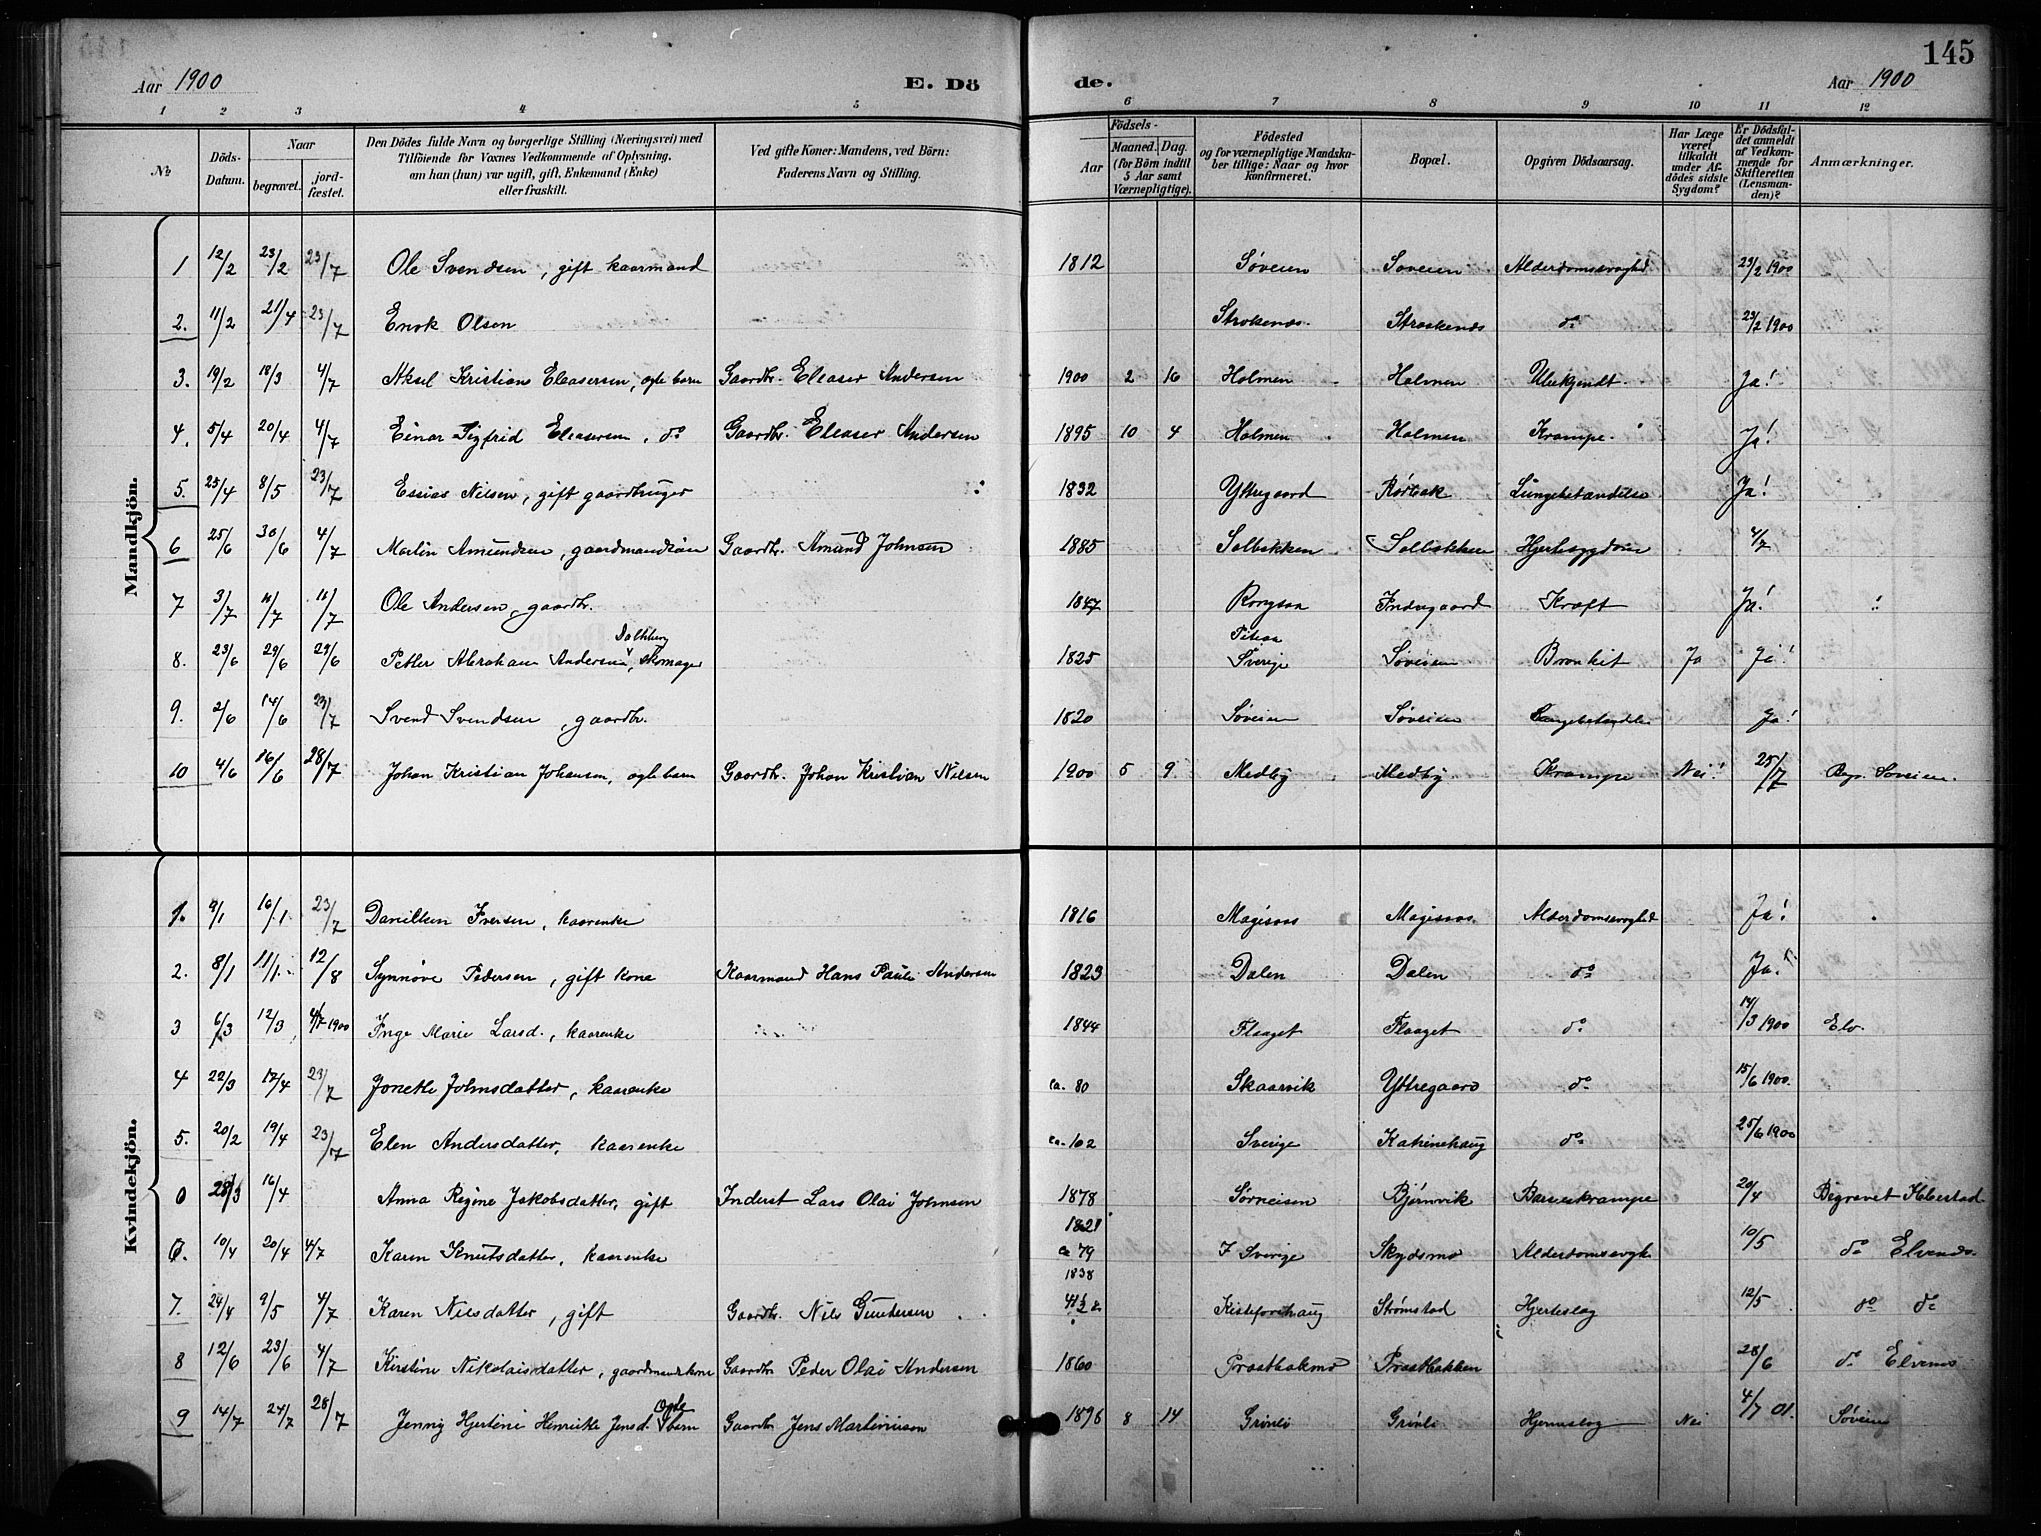 145
Aar 1900 E. Dö
de. Aar 1900
1 2 3 4 5
6 7 8 9 10 11 12
№ | Döds-Datum. | Naar begravet. | jord-fæstet. | Den Dödes fulde Navn og borgerlige Stilling (Næringsvei) med Tilföiende for Voxnes Vedkommende af Oplysning, om han (hun) var ugift, gift, Enkemand (Enke) eller fraskilt. | Ved gifte Koner: Mandens, ved Börn: Faderens Navn og Stilling. | Födsels- Aar | Maaned. Dag. (for Börn indtil 5 Aar samt Værnepligtige). | Födested og for værnepligtige Mandskaber tillige: Naar og hvor konfirmeret. | Bopæl. | Opgiven Dödsaarsag. | Har Læge været tilkaldt under Afdödes sidste Sygdom? | Er Dödsfaldet anmeldt af Vedkommende for Skifteretten (Lensmanden)? | Anmærkninger.
Mandkjön.
1 12/2 23/2 23/7 Ole Svendsen, gift kaarmand 1812 Søveien Søveien Alderdomssvaghd 23/2 1900
2. 11/2 21/4 23/7 Enok Olsen Strokenæs Straakenæs do 23/2 1900
3. 19/2 18/3 4/7 Aksel Kristians Eleasersen, ogte barn Gaardbr. Eleaser Andersen 1900 2 16 Holmen Holmen Ubekjendt. Ja!
4. 5/4 20/4 4/7 Einar Sigfrid Eleasersen, do Gaardbr. Eleaser Andersen 1895 10 4 Holmen Holmen Krampe. Ja!
5. 25/4 8/5 23/7 Essias Nilsen, gift gaardbruger 1832 Yttregaard Rørbak Lungebetændelse Ja!
6 25/6 30/6 4/7 Martin Amundsen, gaardmandssøn Gaardbr. Amund Johnsen 1885 Solbakken Solbakken Hjertesygdom 4/7
7 3/7 11/7 11/7 Ole Andersen, gaardbr. 1847 Indregaard Kræft Ja!
8. 23/6 29/6 29/6 Petter Abraham Andersen Dalhberg, skomager 1825 Piteaa Sverige Søveien Bronkit Ja Ja!
9. 2/6 14/6 23/7 Svend Svendsen, gaardbr. 1820 Søveien Søveien Lungebetændelse Ja!
10 4/6 16/6 28/7 Johan Kristian Johansen, ogte barn Gaardbr. Johan Kristian Nilsen 1900 5 9 Medby Medby Krampe Nei! 25/7 Begr. Søveien.
Kvindekjön.
1. 9/1 16/1 23/7 Danilken Iversen, kaarenke 1816 Magisaas Magisaas. Alderdomssvaghd Ja!
2. 8/1 11/1 12/8 Synnøve Pedersen, gift kone Kaarmand Hans Pauli Andersen 1823 Dalen Dalen do Ja!
3 6/3 12/3 4/7 1900 Inge Marie Larsd., kaarenke 1844 Flaaget Flaaget do 14/3 1900 Elv.
4 22/3 17/4 23/7 Jonette Johnsdatter, kaarenke ca. 80 Skaarvik Yttregaard do 15/6 1900.
5. 20/2 19/4 23/7 Elen Andersdatter, kaarenke ca. 102 Sverige Katrinehaug do 25/6 1900
0 28/3 16/4 Anna Regine Jakobsdatter, gift Inderst Lars Olai Johnsen 1878 Sørreisen Bjørnvik Barneskrampe 20/4 Begravet Kberstad
6. 10/4 20/4 4/7 Karen Knutsdatter, kaarenke 1821 ca 79 I Sverige Skydsmo Alderdomssvgh. 10/5 do Elvenæs.
7. 24/4 9/5 4/7 Karen Nilsdatter, gift Gaardbr. Nils Guntersen 1838 Kistefosshaug Strømstad Hjerteslag 12/5 do do
8 12/6 23/6 4/7 Kirstine Nikolaisdatter, gaardmandskone Gaardbr. Peder Olai Andersen 1860 Prastbakmo Prastbakken 28/6 do Elvenes
9 14/7 24/7 28/7 Jenny Hjertine Henrikke Jensd. Ogte barn Gaardbr Jens Martinusson 1896 8 14 Grønli Grønli Hjerneslag Nei 4/7 01. Søveien